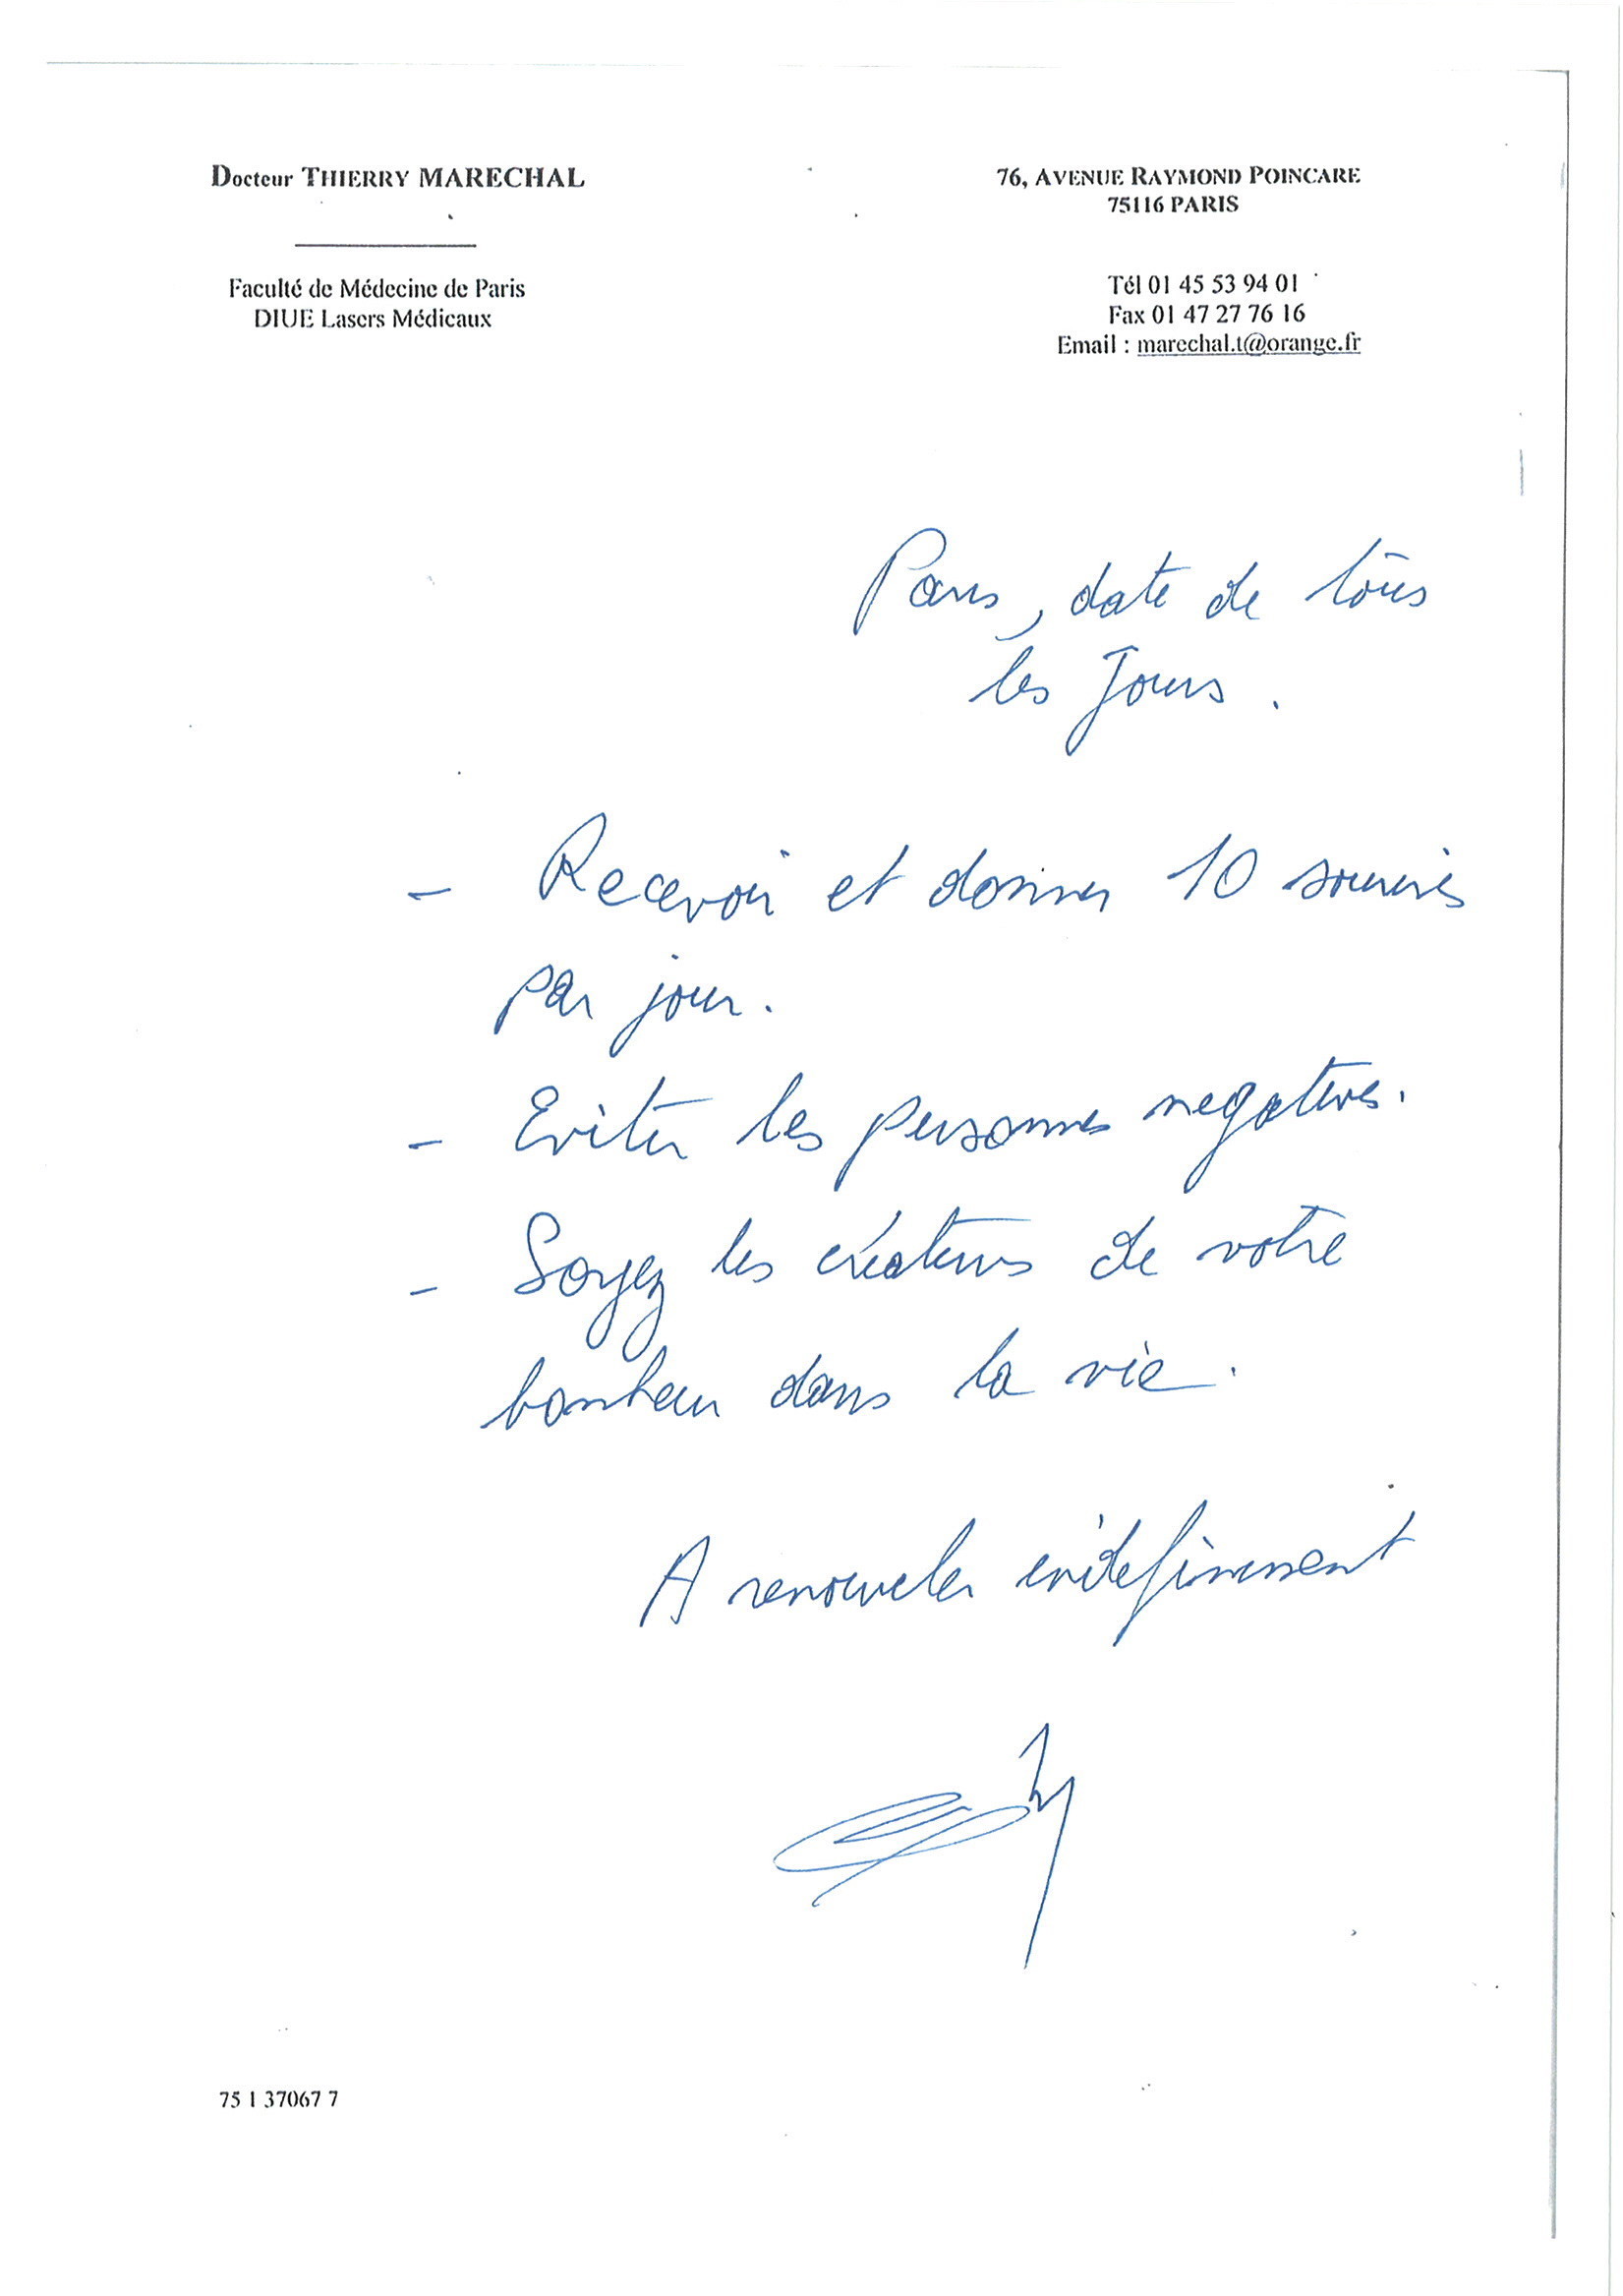 Docteur THIERRY MARECHAL
Faculté de Médecine de Paris
DIUE Lasers Médicaux
76, AVENUE RAYMOND POINCARE
75116 PARIS
Tél 01 45 53 94 01
Fax 01 47 27 76 16
Email : marechal.t@orange.fr
Paris, date de tous
les Jours.
- Recevoir et donner 10 sourires
par jour.
- Eviter les personnes negatives.
- Soyez les créateurs de votre
bonheur dans la vie.
A renouveler indefiniment
75 1 37067 7